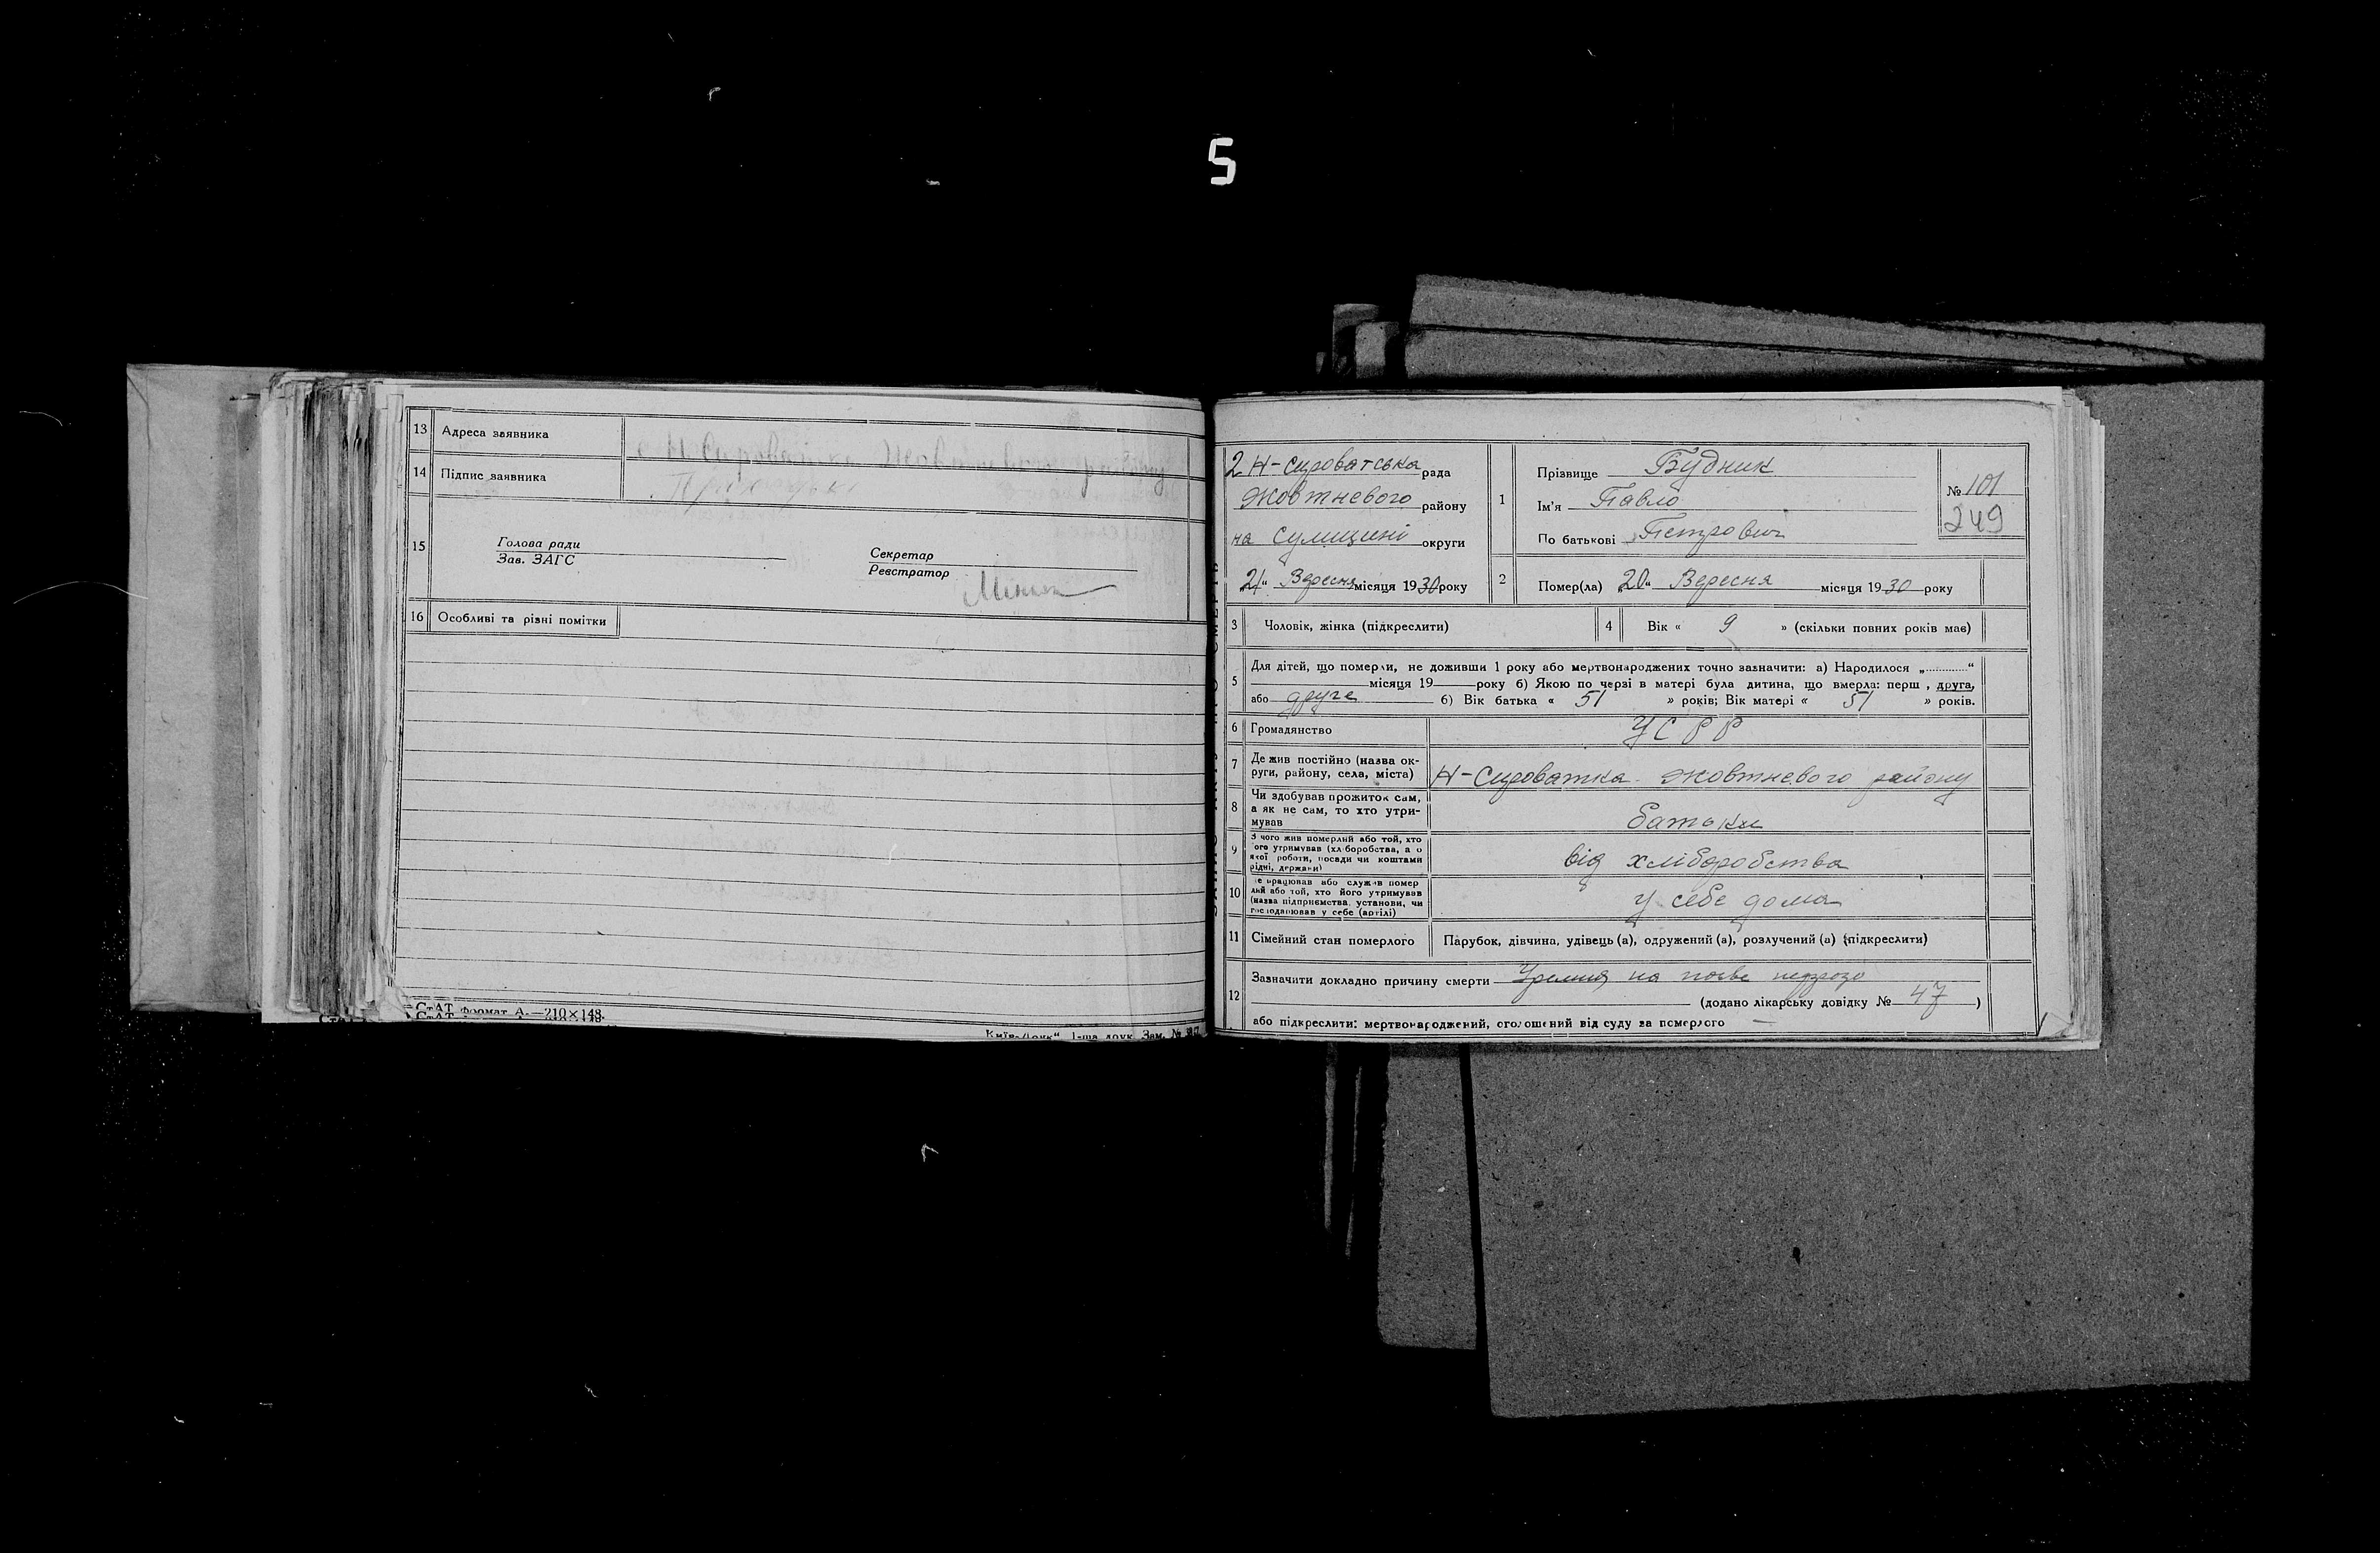 5
13 Адреса заявника
14 Підпис заявника
15 Голова ради
Зав. ЗАГС
Секретар
Реєстратор
16 Особливі та різні помітки
СтАТ формат А.—210×148.
1-ша друк. Зам. №
2 Н-Сироватська рада
Жовтневого району
на Сумщині округи
21 „ Вересня місяця 1930 року
1 Прізвище Будник
Ім'я Павло
По батькові Петрович
№ 101
249
2 Помер(ла) „20 „ Вересня місяця 1930 року
3 Чоловік, жінка (підкреслити)
4 Вік « 9 » (скільки повних років має)
5 Для дітей, що померли, не доживши 1 року або мертвонароджених точно зазначити: а) Народилося „............“
місяця 19 року б) Якою по черзі в матері була дитина, що вмерла: перш , друга,
або друге б) Вік батька « 51 » років; Вік матері « 51 » років.
6 Громадянство УСРР
7 Де жив постійно (назва ок-
руги, району, села, міста) Н-Сироватка Жовтневого району
8 Чи здобував прожиток сам,
а як не сам, то хто утри-
мував батьки
9 З чого жив померлий або той, хто
його утримував (хліборобства, а о
якої роботи, посади чи коштами
рідні, держави) від хліборобства
10 Де працював або служив помер
лий або той, хто його утримував
(назва підприємства, установи, чи
господарював у себе (артілі) у себе дома
11 Сімейний стан померлого Парубок, дівчина, удівець (а), одружений (а), розлучений (а) (підкреслити)
12 Зазначити докладно причину смерти Уремия на
(додано лікарську довідку № 47 )
або підкреслити: мертвонароджений, оголошений від суду за померлого